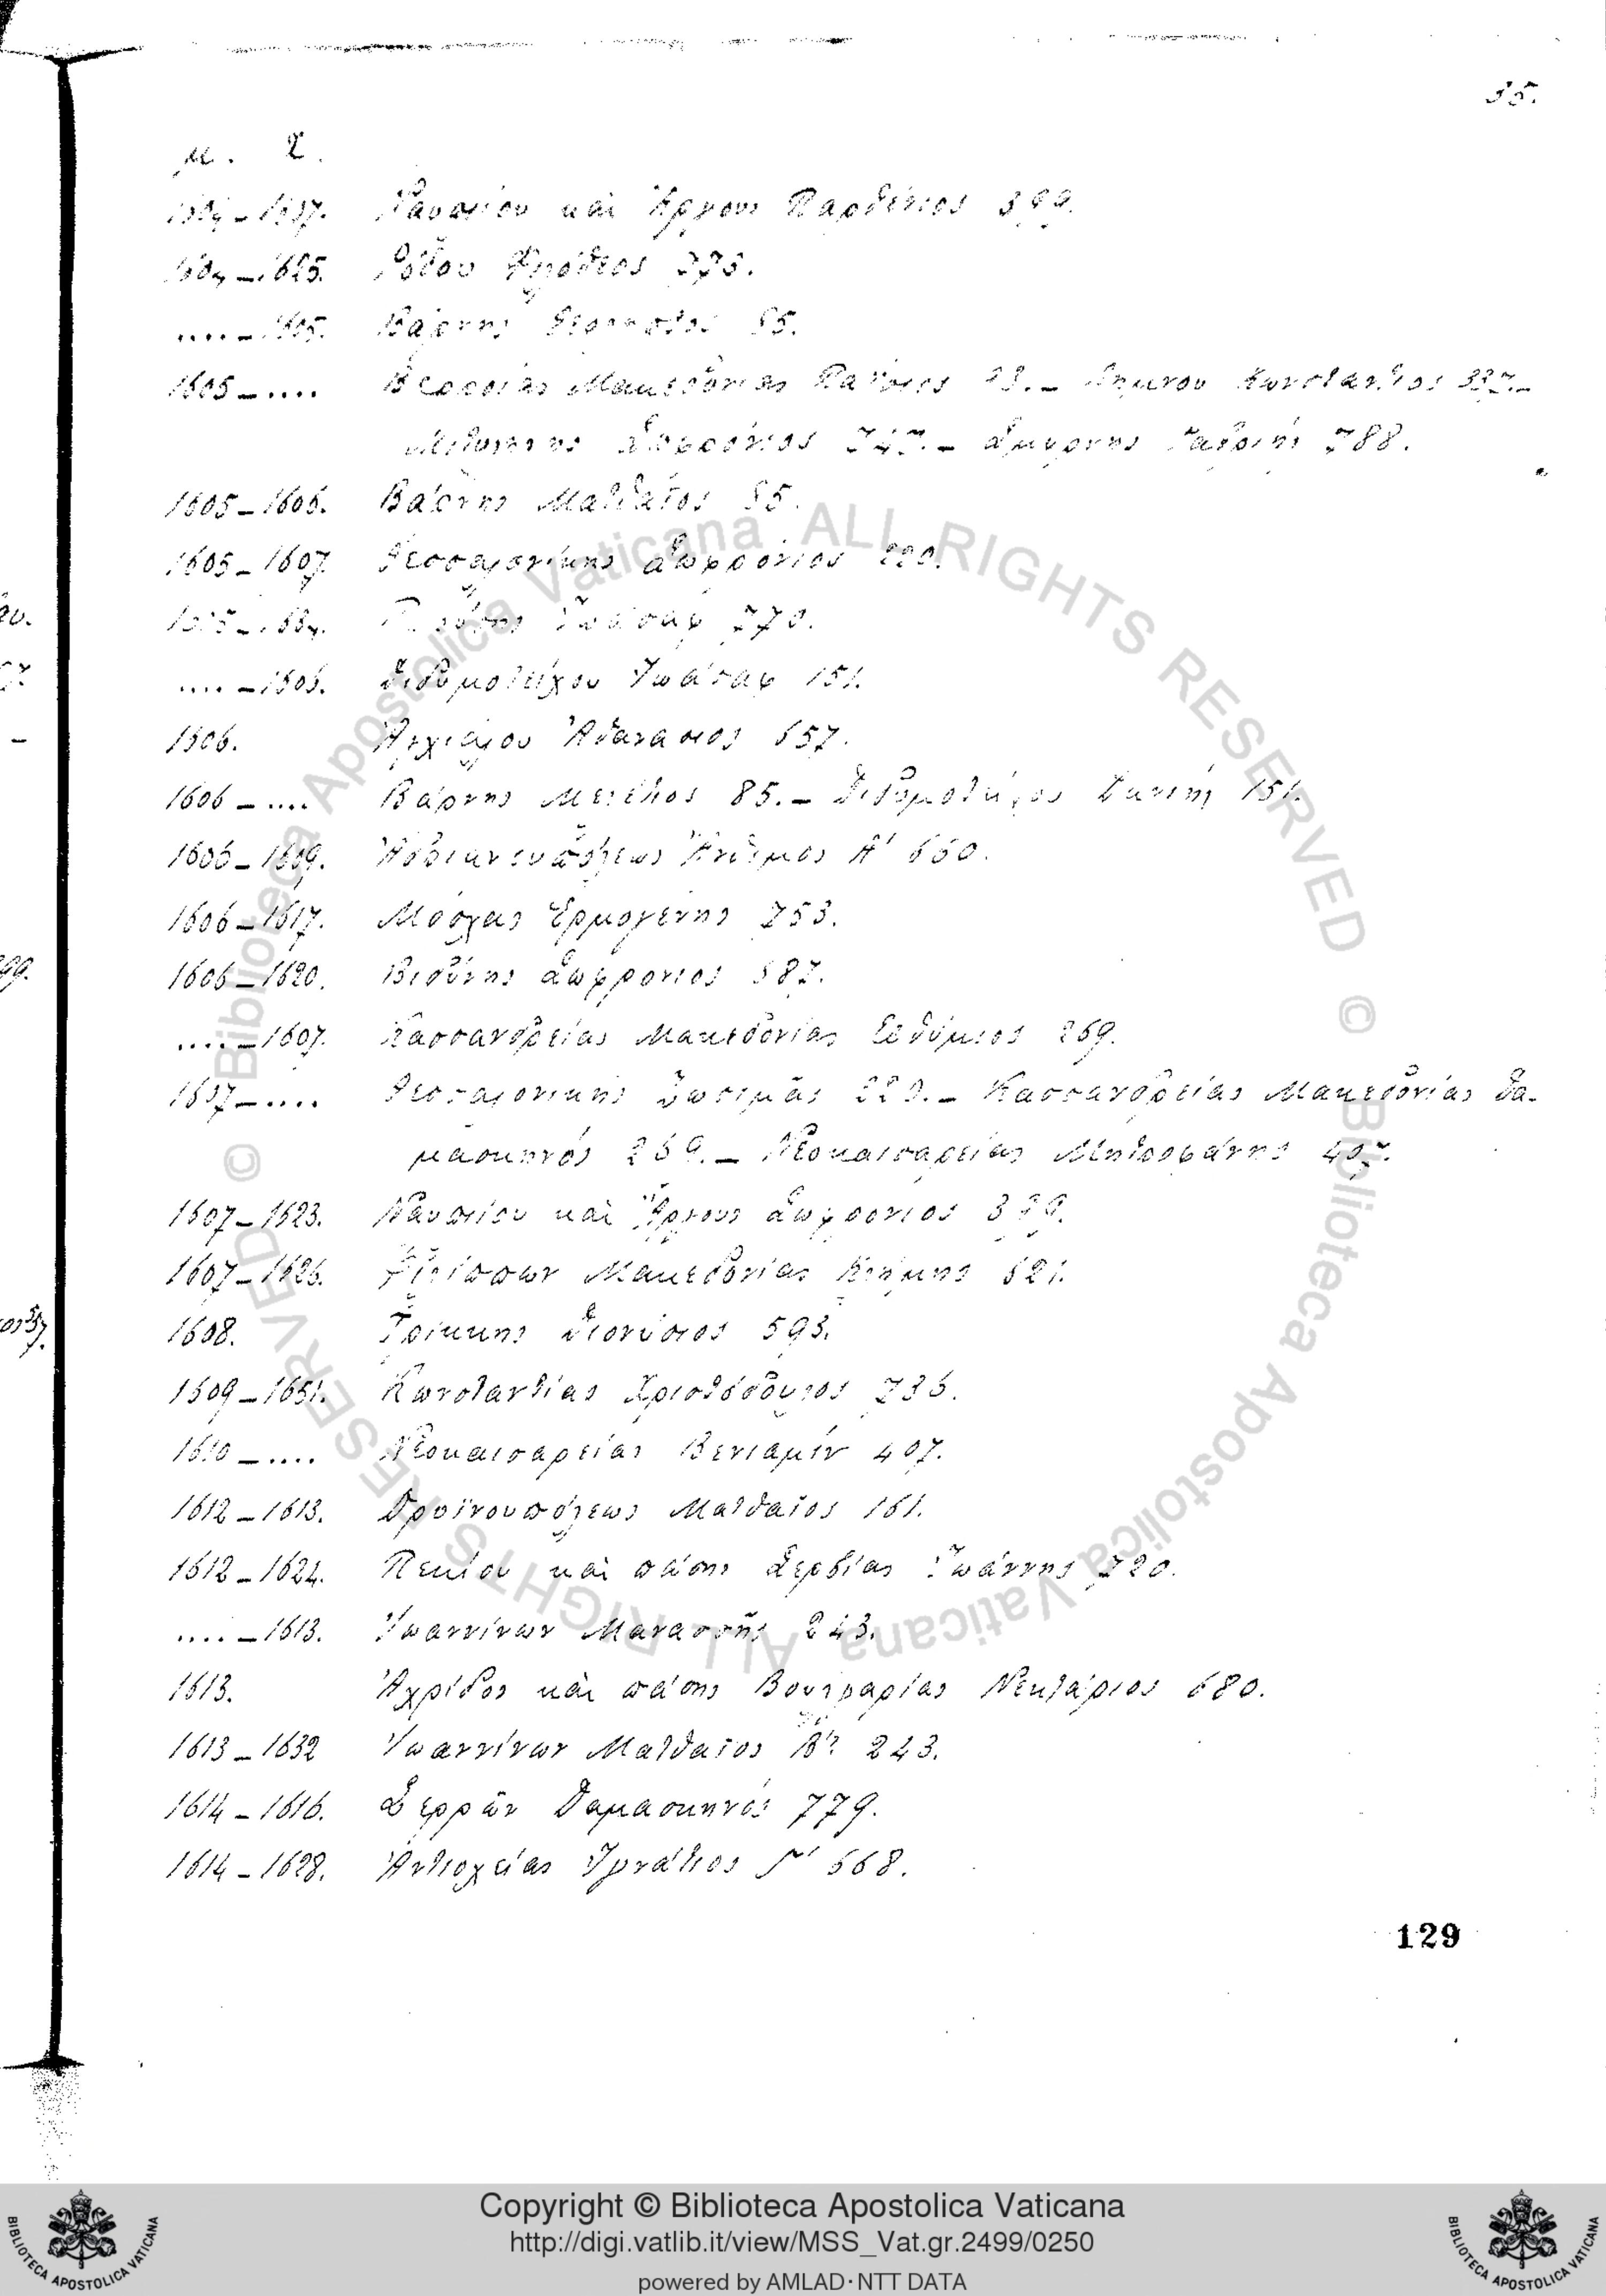 35.
μ. Χ.
Ναυπλίου καὶ Ἄργους Παρθένιος 399.
Ῥόδου
.... – 1605. Βάρνης 85.
1605 – .... Βερροίας Μακεδονίας – Λήμνου Κωνστάντιος
Σωφρόνιος – Σμύρνης Γαβριήλ 788.
1605 – 1606. Βάρνης Ματθαῖος 85.
1605 – 1607. Θεσσαλονίκης Σωφρόνιος 220.
Ἰωάσαφ 770.
.... – 1606. Διδυμοτείχου Ἰωάσαφ 151.
1606. Ἀγχιάλου Ἀθανάσιος 657.
1606 – .... Βάρνης Μελέτιος 85. – Διδυμοτείχου Δανιήλ 151.
1606 – 1609. Ἀδριανουπόλεως Ἄνθιμος Α' 660.
1606 – 1617. Μόσχας Ἑρμογένης 753.
1606 – 1620. Βιδύνης Σωφρόνιος 687.
.... – 1607. Κασσανδρείας Μακεδονίας Εὐθύμιος 269.
1607 – .... Θεσσαλονίκης Ζωσιμᾶς 220. – Κασσανδρείας Μακεδονίας Δα-
μασκηνός 269. – Νεοκαισαρείας Μητροφάνης 407.
1607 – 1623. Ναυπλίου καὶ Ἄργους Σωφρόνιος 399.
1607 – 1626. Φιλίππων Μακεδονίας Κλήμης 621.
1608. Τρίκκης Διονύσιος 593.
1609 – 1651. Κωνσταντίας Χριστόδουλος 736.
1610 – .... Νεοκαισαρείας Βενιαμίν 407.
1612 – 1613. Δρυϊνουπόλεως Ματθαῖος 161.
1612 – 1624. Πεκίου καὶ πάσης Σερβίας Ἰωάννης 720.
.... – 1613. Ἰωαννίνων Μανασσῆς 243.
1613. Ἀχρίδος καὶ πάσης Βουλγαρίας Νεκτάριος 680.
1613 – 1632 Ἰωαννίνων Ματθαῖος Β'? 243.
1614 – 1616. Σερρῶν Δαμασκηνός 779.
1614 – 1628. Ἀντιοχείας Ἰγνάτιος Γ' 668.
129
Copyright © Biblioteca Apostolica Vaticana
http://digi.vatlib.it/view/MSS_Vat.gr.2499/0250
powered by AMLAD·NTT DATA
BIBLIOTECA APOSTOLICA VATICANA
BIBLIOTECA APOSTOLICA VATICANA
© Biblioteca Apostolica Vaticana ALL RIGHTS RESERVED
© Biblioteca Apostolica Vaticana ALL RIGHTS RESERVED